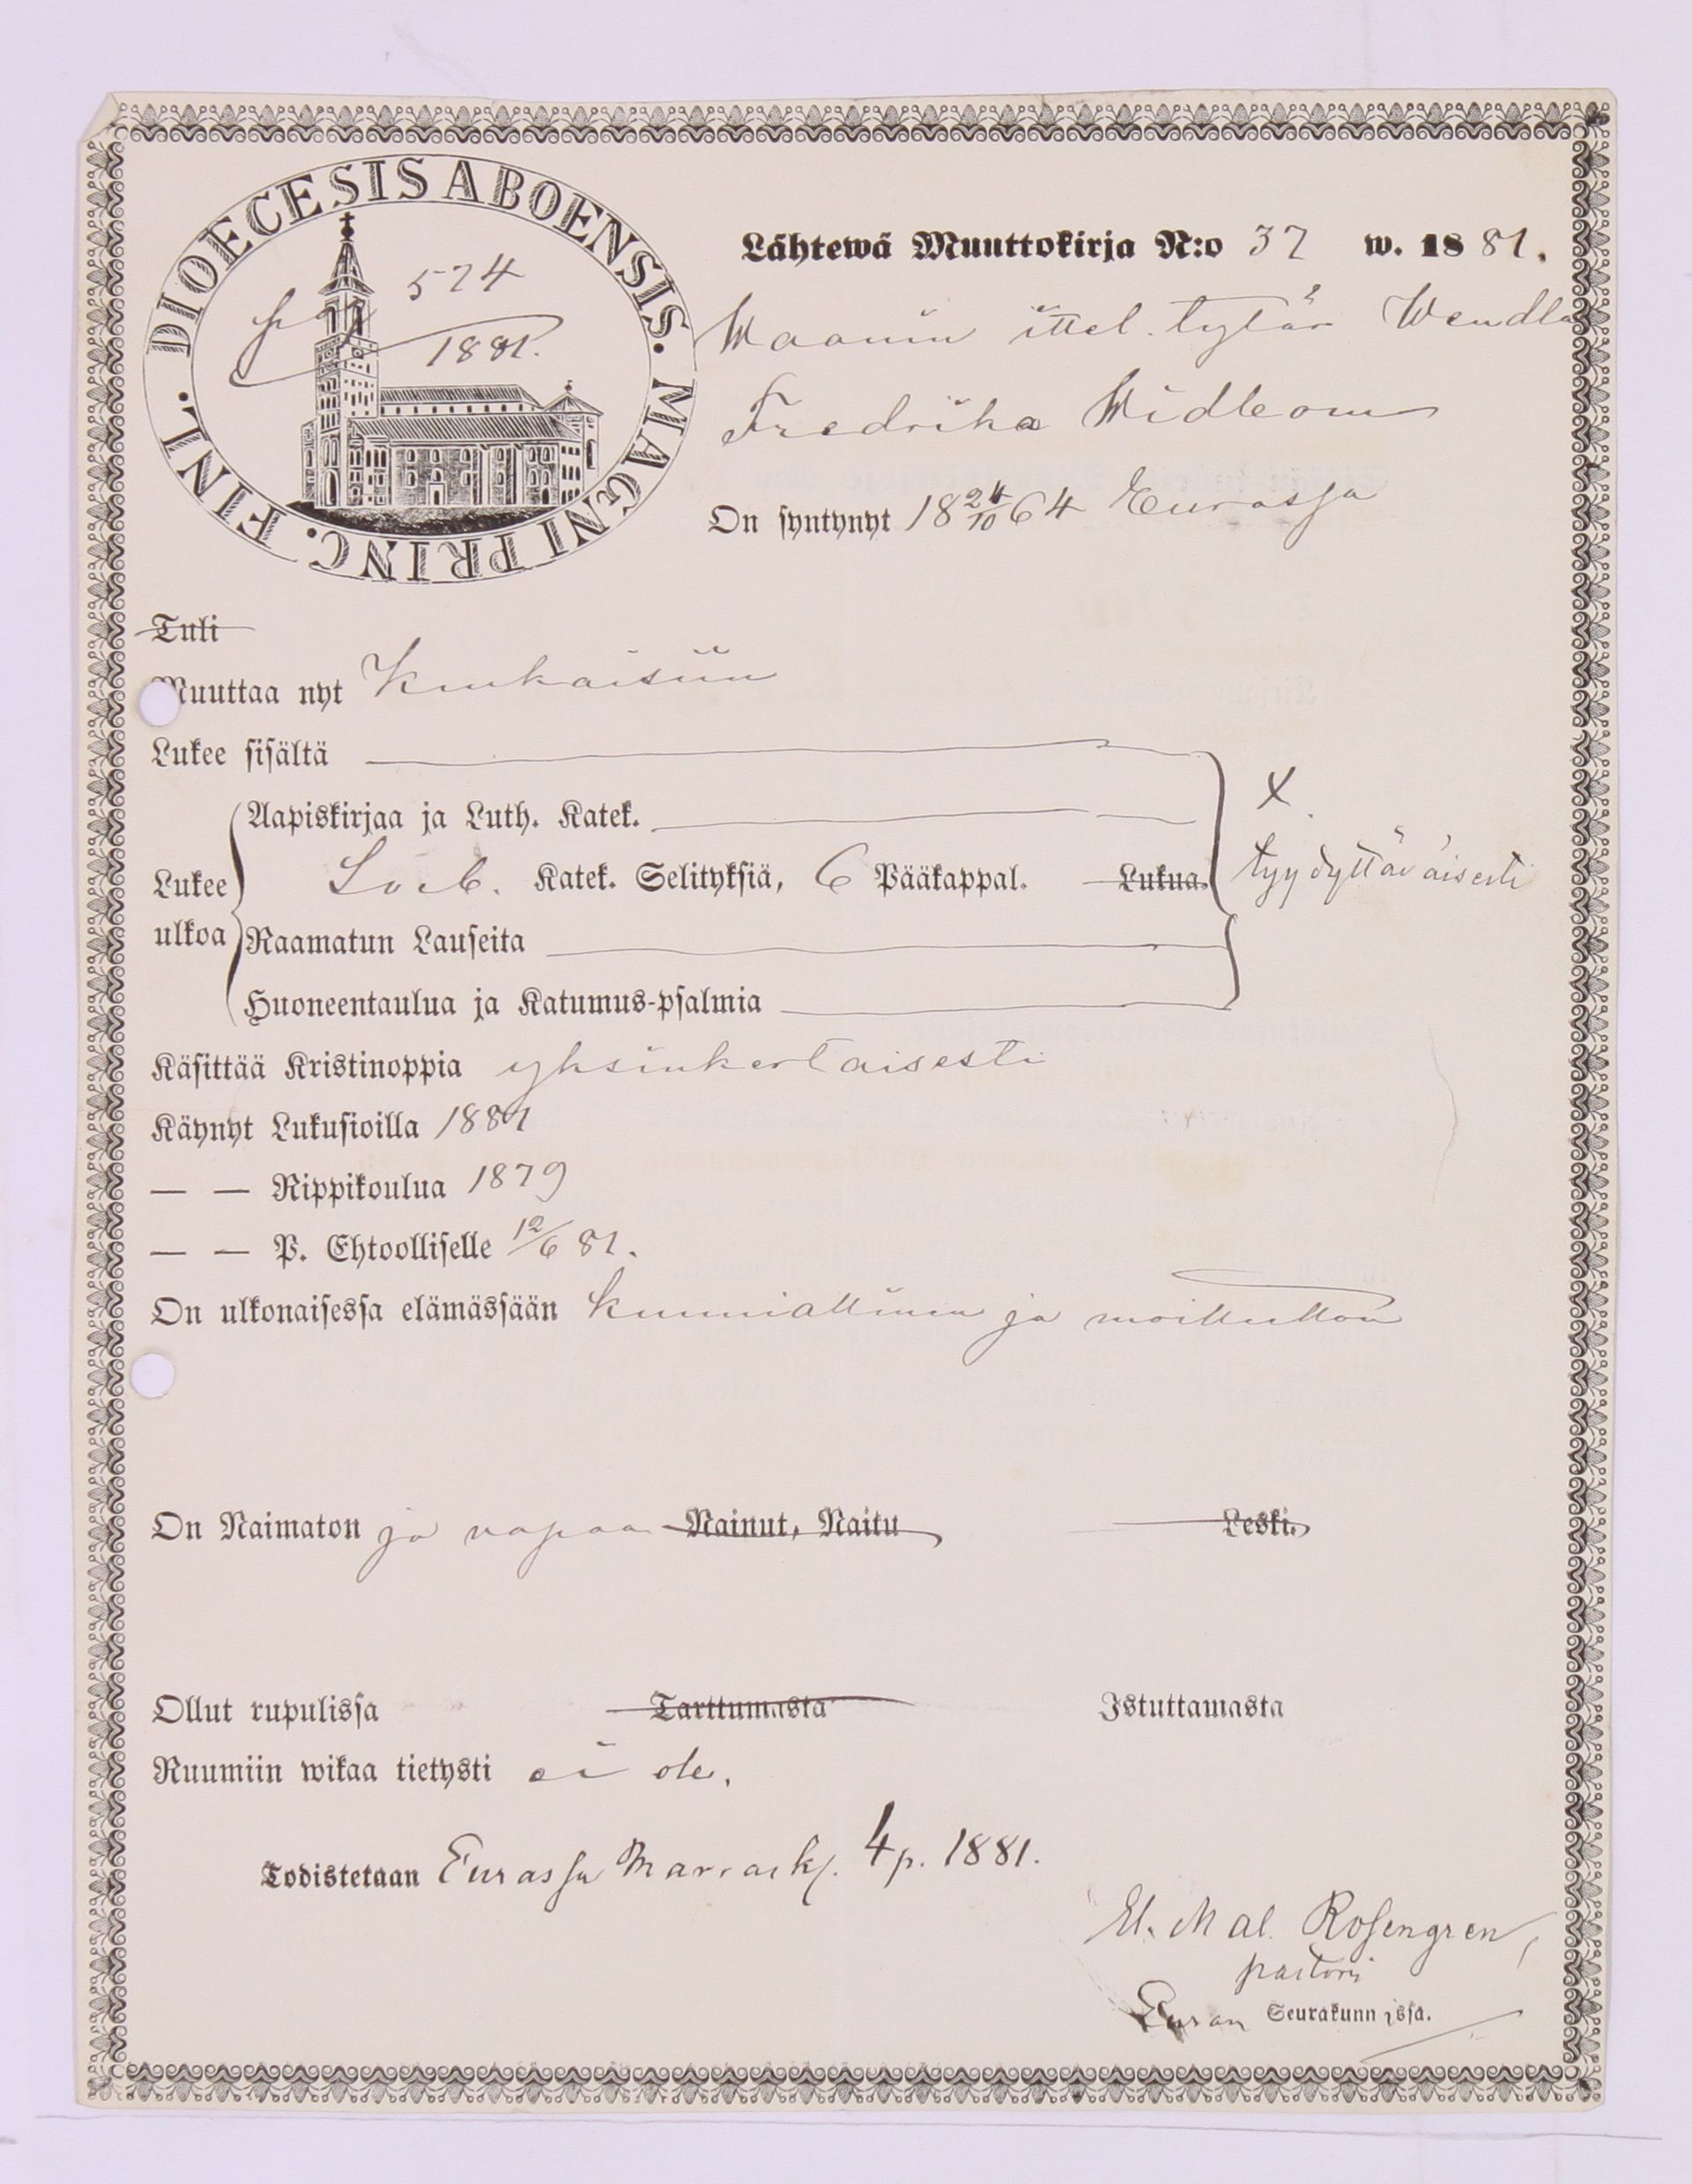 DIOECESIS ABOENSIS. MAGNI PRINC. FINL.
pag 574
1881.
Lähtewä Muuttokirja N:o 37 w. 1881.
ittel. tytär Wendla
Fredrika Widbom
On syntynyt 18 24/10 64 Eurassa
Tuli
Muuttaa nyt Kiukaisiin
Lukee sisältä
Aapiskirjaa ja Luth. Katek.
X
Lukee ulkoa
Sveb. Katek. Selityksiä, 6 Pääkappal. Lukua.
tyydyttäväisesti
Raamatun Lauseita
Huoneentaulua ja Katumus-psalmia
Käsittää Kristinoppia yksinkertaisesti
Käynyt Lukusioilla 1881
— — Rippikoulua 1879
— — P. Ehtoolliselle 12/6 81.
On ulkonaisessa elämässään kunniallinen ja moitteeton
On Naimaton ja vapaa Nainut, Naitu Leski.
Ollut rupulissa Tarttumasta Istuttamasta
Ruumiin wikaa tietysti ei ole.
Todistetaan Eurassa Marrask. 4 p. 1881.
El. Mal. Rosengren,
pastori
Euran Seurakunnissa.